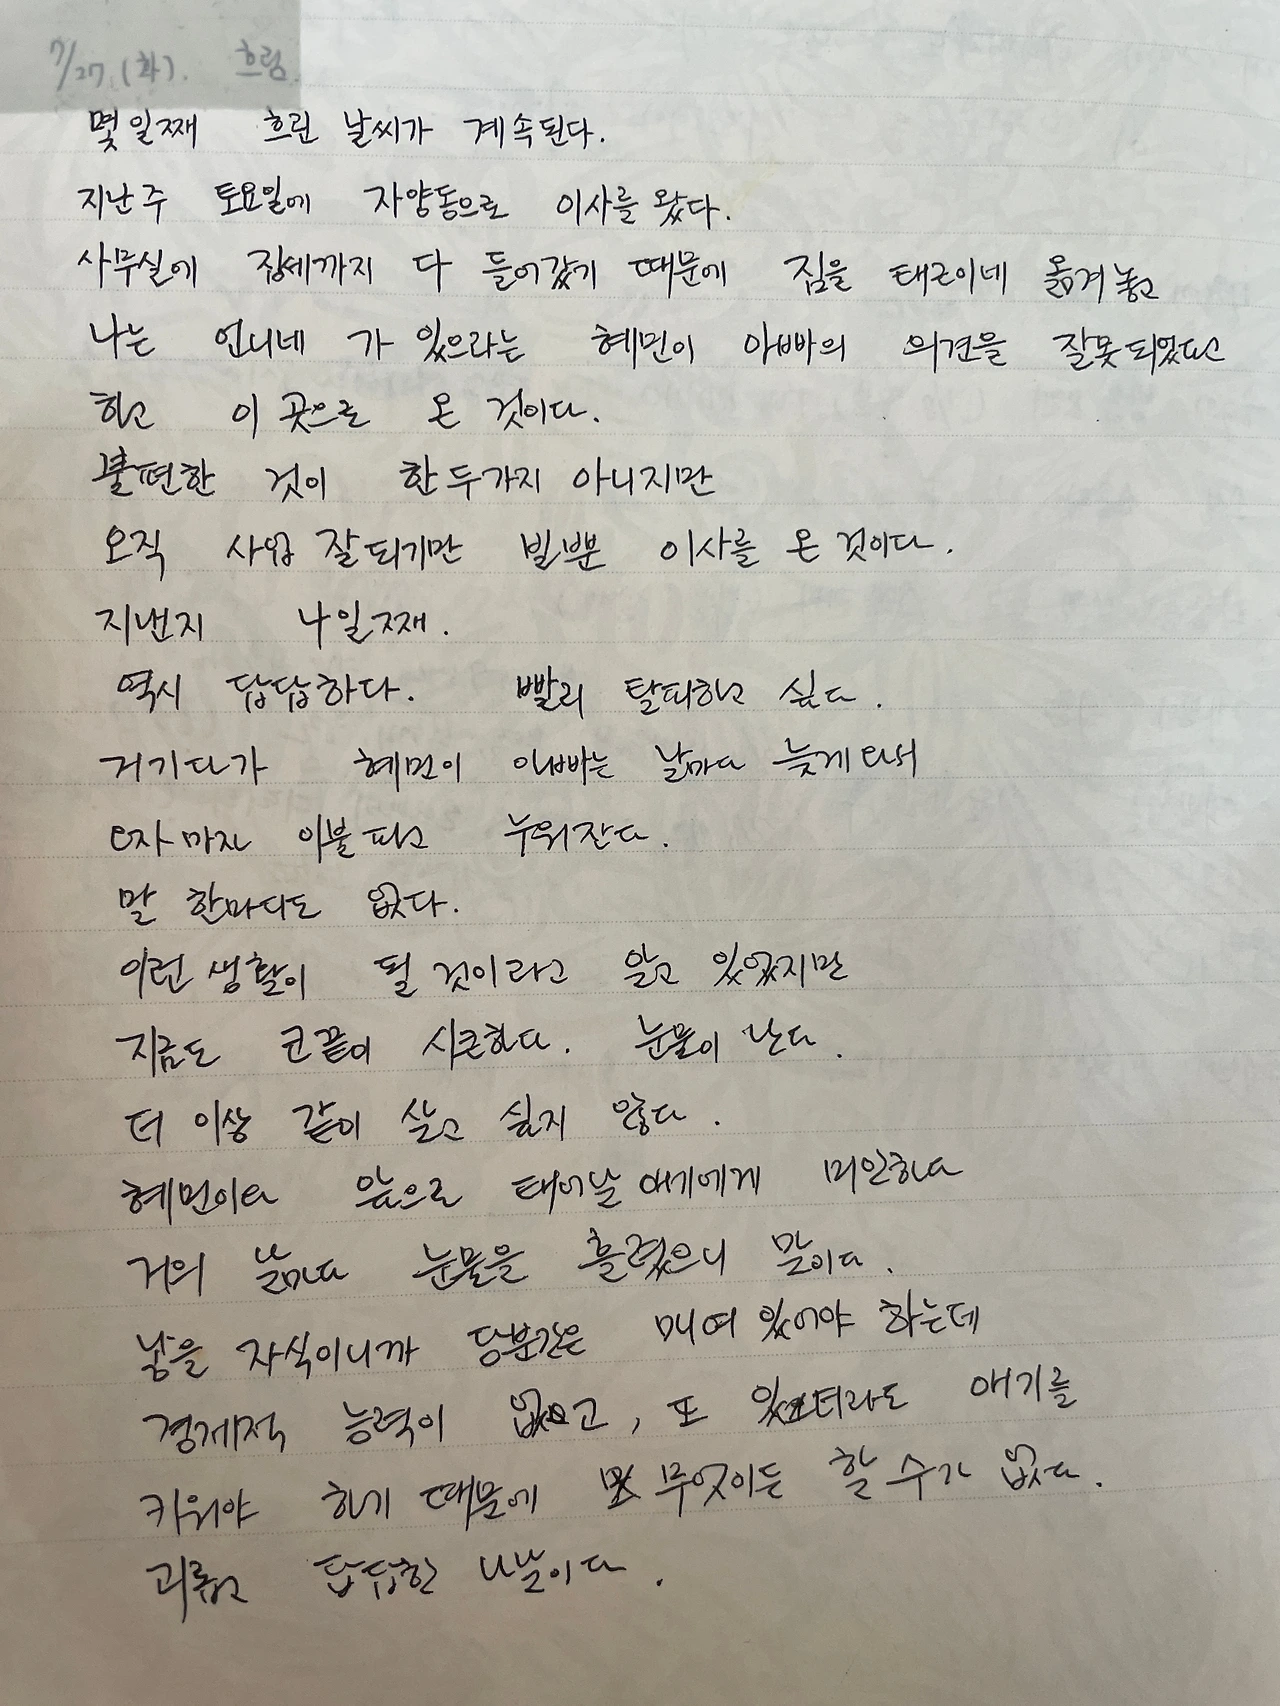 7/27. (화). 흐림.
몇일째 흐린 날씨가 계속된다.
지난주 토요일에 자양동으로 이사를 왔다.
사무실에 집세까지 다 들어갔기 때문에 짐을 태근이네 옮겨놓고
나는 언니네 가 있으라는 혜민이 아빠의 의견을 잘못되었다고
하고 이 곳으로 온 것이다.
불편한 것이 한두가지 아니지만
오직 사업 잘되기만 빌뿐 이사를 온 것이다.
지낸지 나일째.
역시 답답하다. 빨리 탈피하고 싶다.
거기다가 혜민이 아빠는 날마다 늦게 와서
오자마자 이불 피고 누워잔다.
말 한마디도 없다.
이런 생활이 될 것이라고 알고 있었지만
지금도 코끝이 시큰하다. 눈물이 난다.
더 이상 같이 살고 싶지 않다.
혜민이와 앞으로 태어날 애기에게 미안하다
거의 날마다 눈물을 흘렸으니 말이다.
낳을 자식이니까 당분간은 매여 있어야 하는데
경제적 능력이 없고, 또 있더라도 애기를
키워야 하기 때문에 무엇이든 할 수가 없다.
괴롭고 답답한 나날이다.